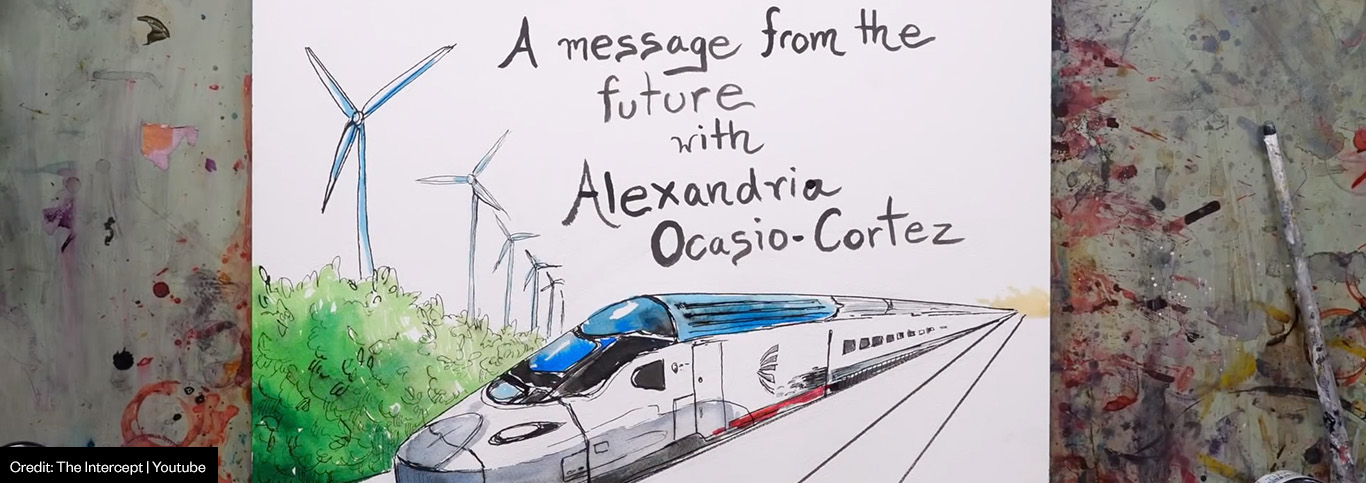 A message from the
future
with
Alexandria
Ocasio-Cortez
Credit: The Intercept | Youtube